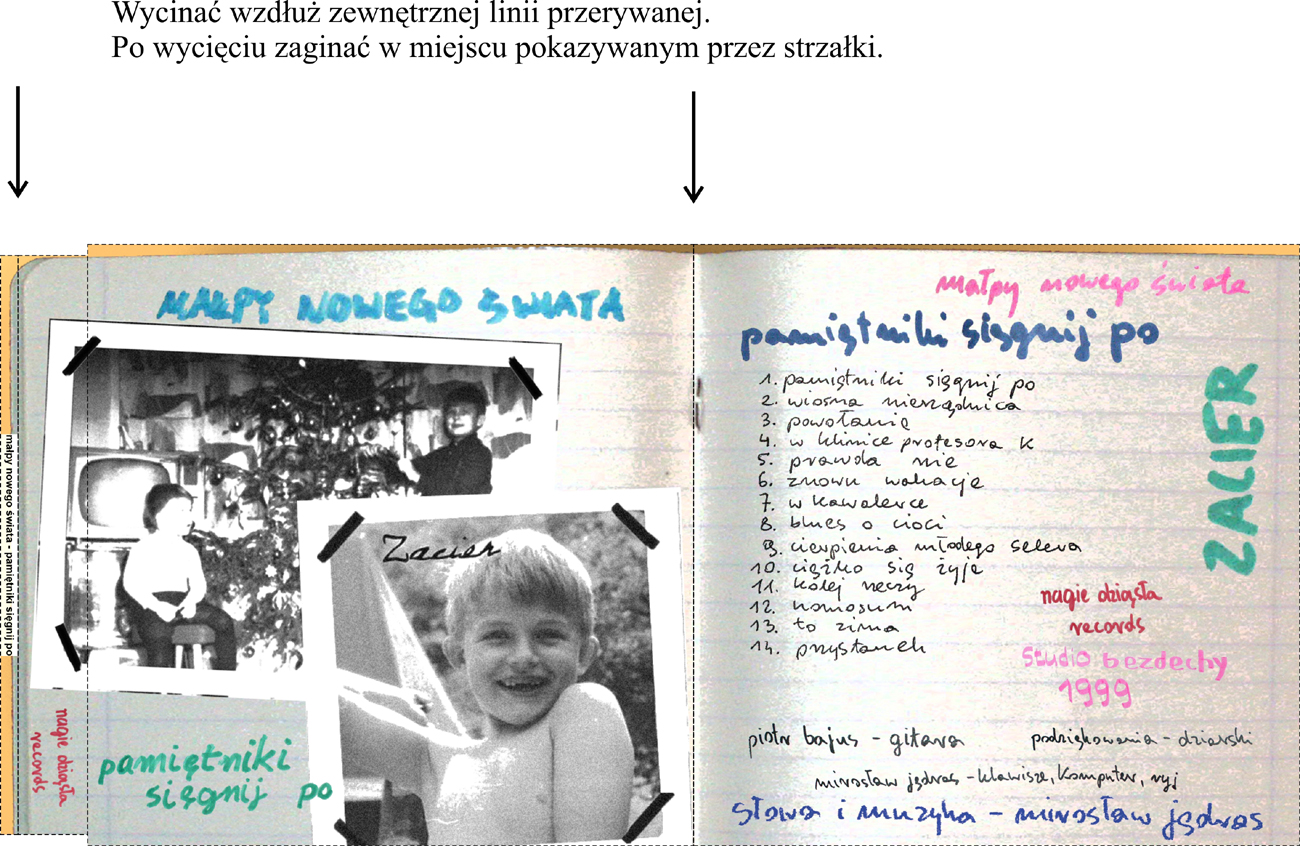 Wycinać wzdłuż zewnętrznej linii przerywanej.
Po wycięciu zaginać w miejscu pokazywanym przez strzałki.
małpy nowego świata - pamiętniki sięgnij po
MAŁPY NOWEGO ŚWIATA
Zacier
nagie dziąsła
records
pamiętniki
sięgnij po
małpy nowego świata
pamiętniki sięgnij po
ZACIER
1. pamiętniki sięgnij po
2. wiosna nierządnica
3. powołanie
4. w klinice profesora K
5. prawda nie
6. znowu wakacje
7. w kawalerce
8. blues o cioci
9. cierpienia młodego selera
10. ciężko się żyje
11. kolej rzeczy
12. homosum
13. to zima
14. przystanek
nagie dziąsła
records
studio bezdechy
1999
piotr bajus - gitara
podziękowania - dziarski
mirosław jędras - klawisze, komputer, ryj
słowa i muzyka - mirosław jędras